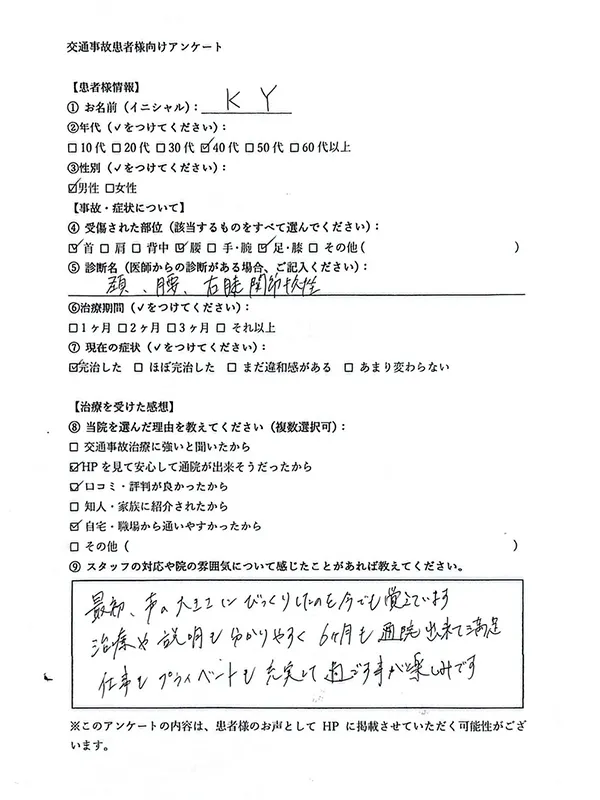 交通事故患者様向けアンケート
【患者様情報】
① お名前（イニシャル）： K Y
②年代（✓をつけてください）：
□ 10 代 □ 20 代 □ 30 代 ☑ 40 代 □ 50 代 □ 60 代以上
③性別（✓をつけてください）：
☑男性 □女性
【事故・症状について】
④ 受傷された部位（該当するものをすべて選んでください）：
☑ 首 □ 肩 □ 背中 ☑ 腰 □ 手・腕 ☑ 足・膝 □ その他（ ）
⑤ 診断名（医師からの診断がある場合、ご記入ください）：
腰、右膝関節捻挫
⑥治療期間（✓をつけてください）：
□ 1 ヶ月 □ 2 ヶ月 □ 3 ヶ月 □ それ以上
⑦ 現在の症状（✓をつけてください）：
☑完治した □ ほぼ完治した □ まだ違和感がある □ あまり変わらない
【治療を受けた感想】
⑧ 当院を選んだ理由を教えてください（複数選択可）：
□ 交通事故治療に強いと聞いたから
☑ HP を見て安心して通院が出来そうだったから
☑ 口コミ・評判が良かったから
□ 知人・家族に紹介されたから
☑ 自宅・職場から通いやすかったから
□ その他（ ）
⑨ スタッフの対応や院の雰囲気について感じたことがあれば教えてください。
最初、声の大きさにびっくりしたのを今でも覚えています
治療や説明も分かりやすく 6ヶ月も通院出来て満足
仕事もプライベートも充実して過ごす事が楽しみです
※このアンケートの内容は、患者様のお声として HP に掲載させていただく可能性がござ
います。